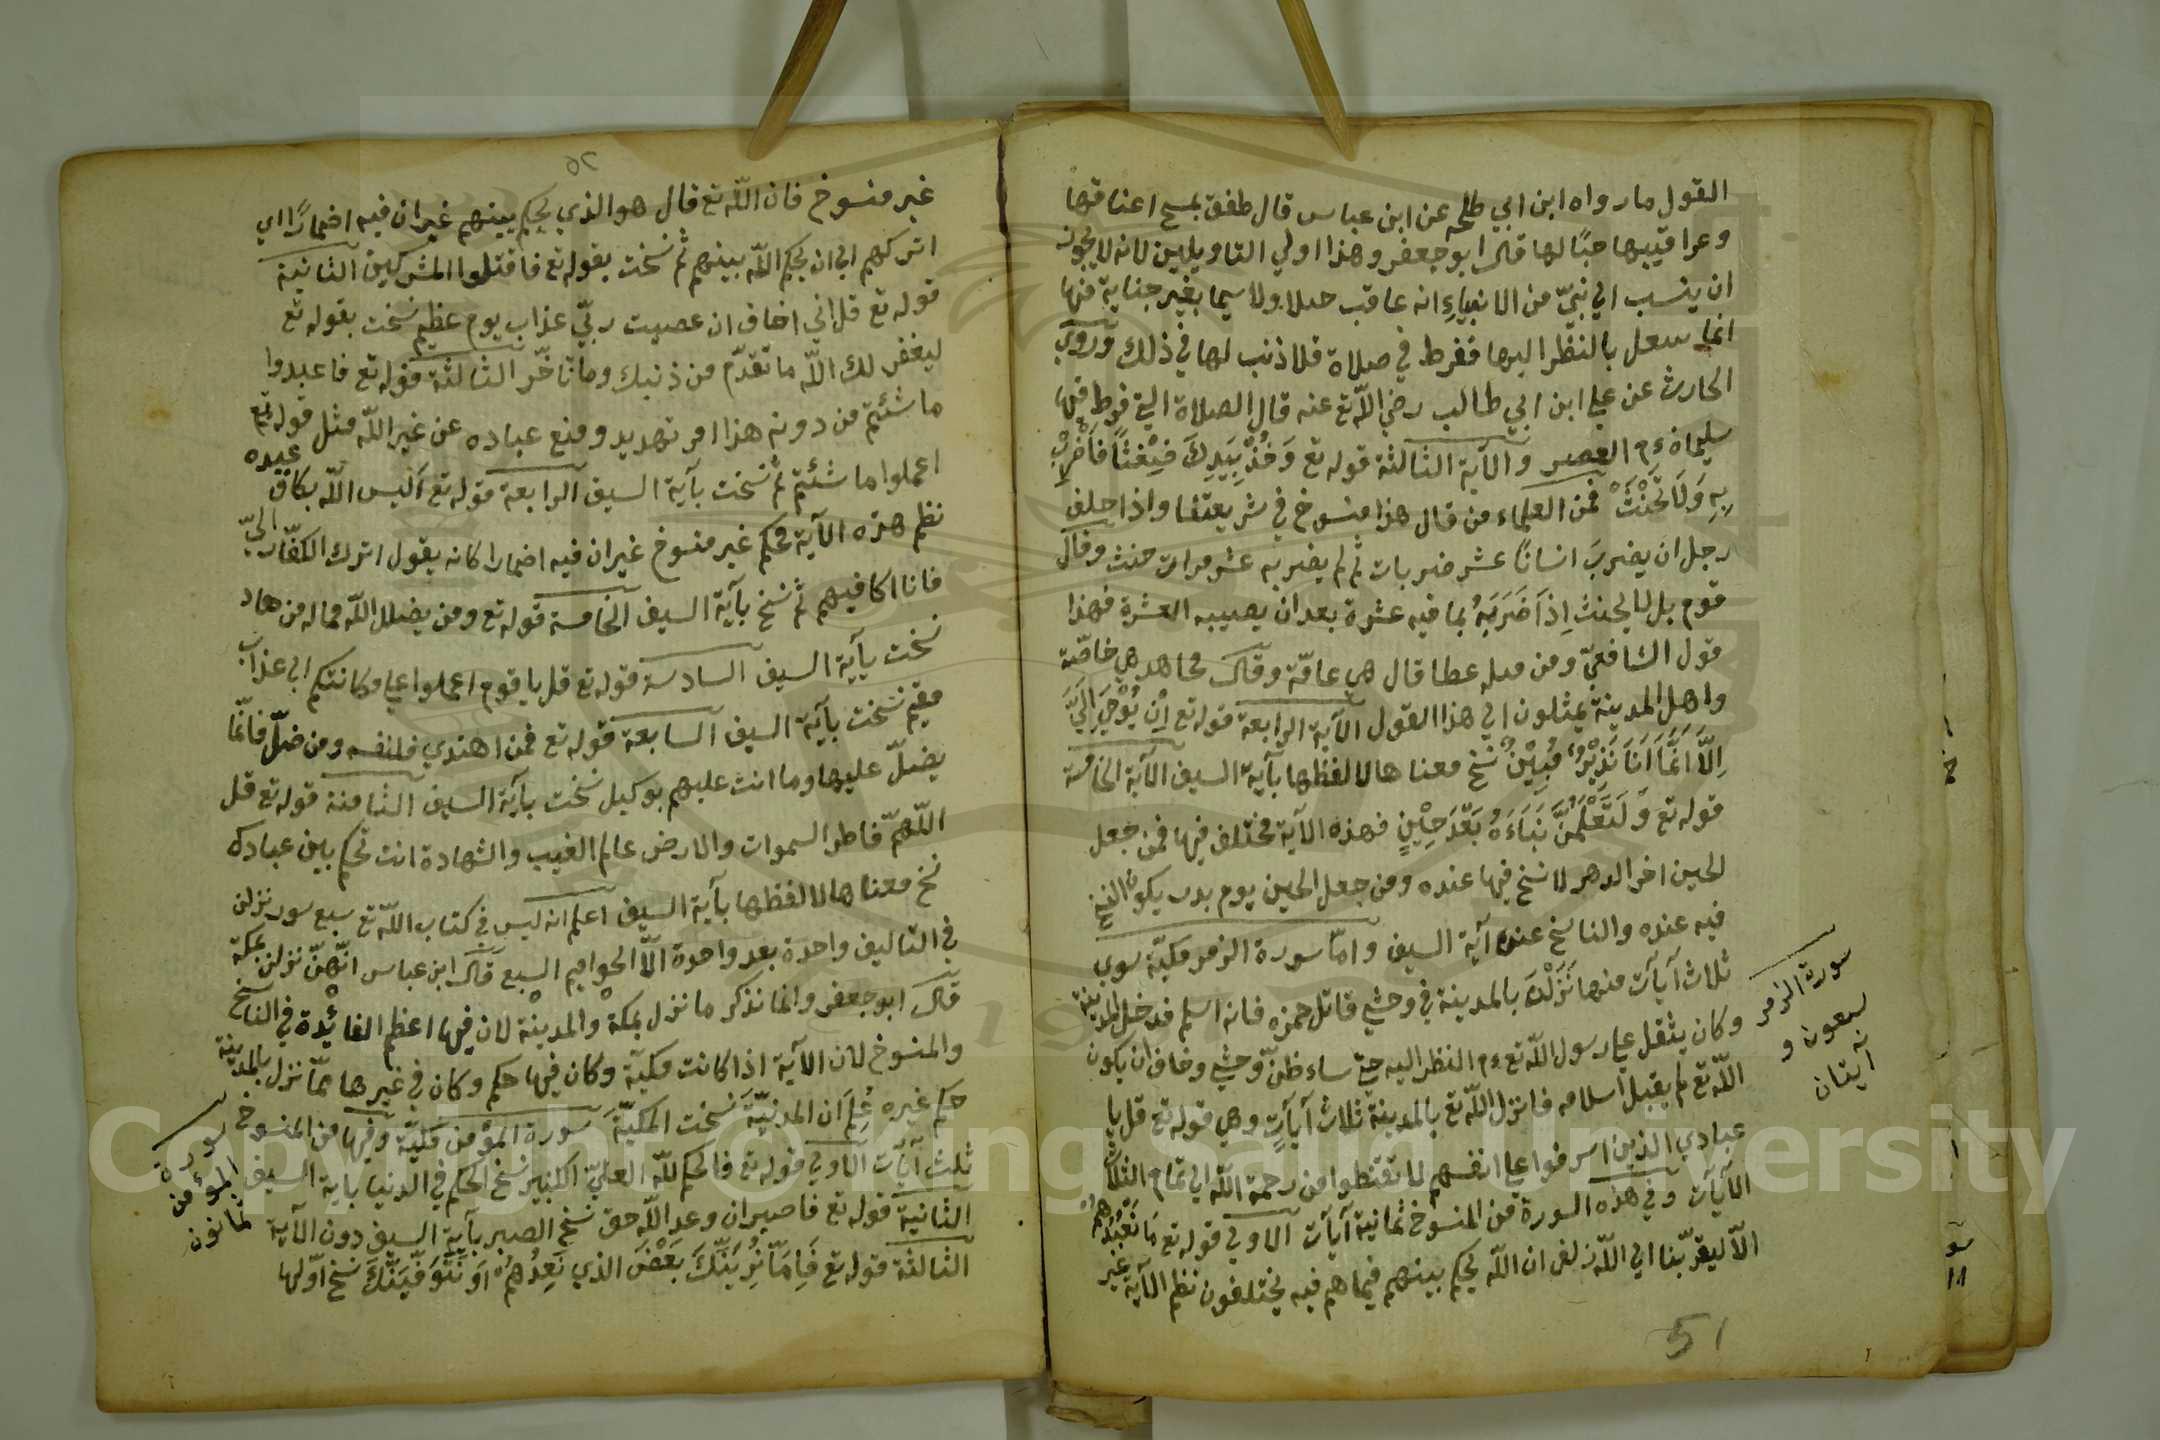 القول ما رواه ابن ابي طلحه عن ابن عباس قال طفق يمسح اعناقها
وعراقيبها حبًا لها قال ابو جعفر وهذا اولي التاويلين لانه لا يجوز
ان ينسب الي نبيّ من الانبياءِ انه عاقب حيلا ولا سيما بغير جناية منها
انما بالنظر اليها ففرط في صلاة فلا ذنب لها في ذلك وروي
الحارث عن علي ابن ابي طالب رضي اللّه تع عنه قال الصلاة التي فرط فيها
سليمان ءم العصر والآية الثالثة قوله تع وَخُذْ بِيَدِكَ ضِغْثًا فَاضْرِبْ
بِهِ وَلَا تَحْنَثْ فمن العلماء من قال هذا منسوخ في شريعتنا واذا حلف
رجل ان يضربَ انسانًا عشر ضربات ثم لم يضربه عشر مرات حنث وقال
قوم بل لا يحنث اِذَا ضَرَبَهُ بما فيه عشرة بعد ان يصيبه العشرة فهذا
قول الشافعيّ ومن عطا قال هي عامّة وقال مجاهد هي خاصّة
واهل المدينة يميلون الي هذا القول الآية الرابعة قوله تع اِنْ يُوْحَى اِلَيَّ
اِلَّا اَنَّمَا اَنَا نَذِيْرٌ مُبِيْنٌ نسخ معناها لا لفظها بآية السيف الآية الخامسة
قوله تع وَلَتَعْلَمُنَّ نَبَاَهُ بَعْدَ حِيْنٍ فهذه الآية مختلف فيها فمن جعل
الحين اخر الدهر لا نسخ فيها عنده ومن جعل الحين يوم بدر يكون النسخ
فيه عنده والناسخ عنده آية السيف واما سورة الزمر مكيّة سوي
ثلاث آيات منها نَزَلْنَ بالمدينة في وحشي قاتل حمزه فانه اسلم فدخل المدينة
وكان يثقل علي رسول اللّه تع ءم النظر اليه حتي ساء ظنّ وحشي وخاف ان يكون
اللّه تع لم يقبل اسلامه فانزل اللّه تع بالمدينة ثلاث آيآتٍ وهي قوله تع قل يا
عبادي الذين اسرفوا علي انفسهم لا تقنطوا من رحمة اللّه الي تمام الثلاث
الآيآت وفي هذه السورة من المنسوخ ثمانية آيآت الاولي قوله تع مَا نَعْبُدُهُمْ
الّا ليقربّنا الي اللّه زلفي ان اللّه يحكم بينهم فيما هم فيه يختلفون نظم الآية غير
سورة الزمر
سبعون و
آيتان
51
٥٢
غير منسوخ فان اللّه تع قال هو الذي يحكم بينهم غير ان فيه اضمارًا اي
اتركهم الي ان يحكم اللّه بينهم ثم نسخت بقوله تع فاقتلوا المشركين الثانية
قوله تع قل اني اخاف ان عصيت ربّي عذاب يوم عظيم نسخت بقوله تع
ليغفر لك اللّه ما تقدّم من ذنبك وما تأخّر الثالثة قوله تع فاعبدوا
ما شئتم من دونه هذا امر تهديد ومنع عباده عن غير اللّه مثل قوله تع
اعملوا ما شئتم ثم نسخت بآية السيف الرابعة قوله تع اَليس اللّه بكاف عبده
نظم هذه الآية محكم غير منسوخ غير ان فيه اضمارا كانه يقول اترك الكفّار اليّ
فانا اكافيهم ثم نسخ بآية السيف الخامسة قوله تع ومن يضلل اللّه فما له من هاد
نسخت بآية السيف السادسة قوله تع قل يا قوم اعملوا علي مكانتكم الي عذاب
مقيم نسخت بآية السيف السابعة قوله تع فمن اهتدي فلنفسه ومن ضلّ فانّما
يضلّ عليها وما انت عليهم بوكيل نسخت بآية السيف الثامنة قوله تع قل
اللّهمّ فاطر السموات والارض عالم الغيب والشهادة انت تحكم بين عبادك
نسخ معناها لا لفظها بآية السيف اعلم انه ليس في كتاب اللّه تع سبع سور نزلن
في التاليف واحدة بعد واحدة الّا الحواميم السبع قال ابن عباس انّهنّ نزلن بمكة
قال ابو جعفر وانما نذكر ما نزل بمكة والمدينة لان فيها اعظم الفائدة في الناسخ
والمنسوخ لان الآية اذا كانت مكيّة وكان فيها حكم وكان في غيرها ممّا نزل بالمدينة
حكم غيره عُلِمَ ان المدنيّةَ نسخت المكيّة سورة المؤمن مكيّة وفيها من المنسوخ
ثلث آيآت الاولي قوله تع فالحكم للّه العليّ الكبير نسخ الحكم في الدنيا باية السيف
الثانية قوله تع فاصبر ان وعد اللّه حق نسخ الصبر بآية السيف دون الآية
الثالثة قوله تع فَاِمّا نُرِيَنَّكَ بَعْضَ الذي نَعِدُهُمْ اَو نَتَوَفّيَنَّكَ نسخ اوّلها
سورة
المؤمن
ثمانون
Copyright © King Saud University